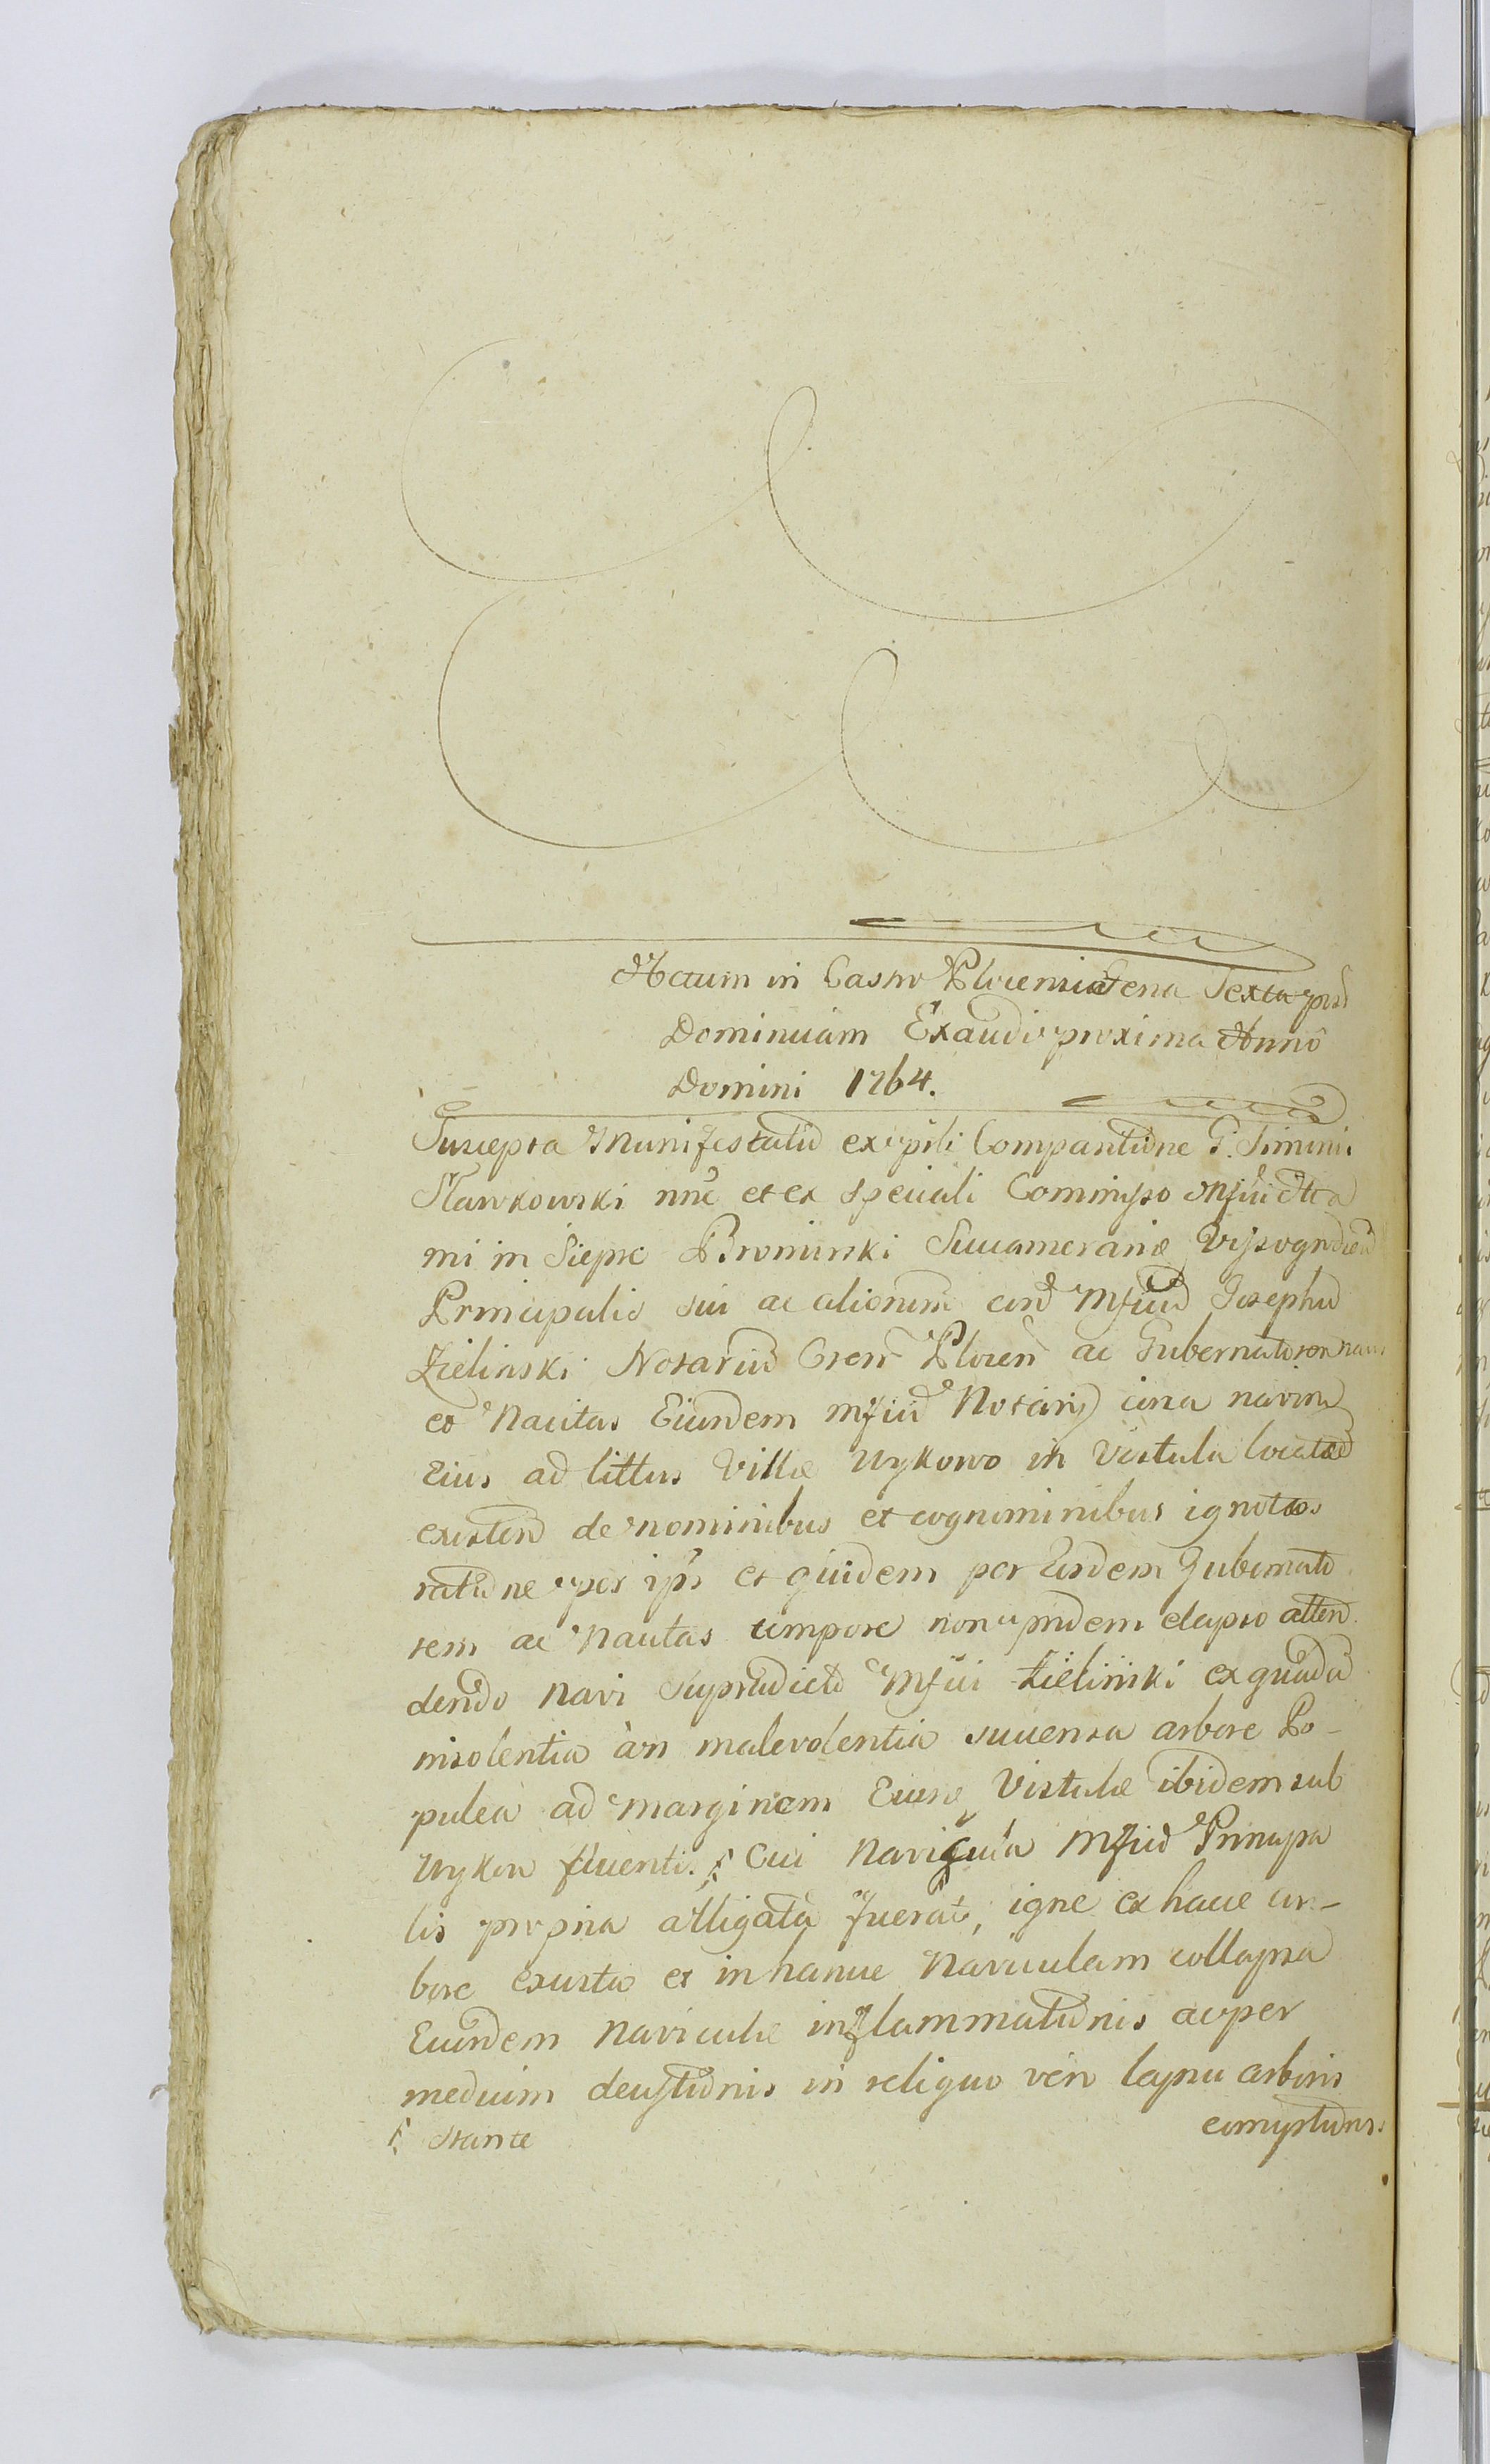 Actum in Castro Plocensi Feria Sexta post
Dominicam Exaudi proxima Anno
Domini 1764.
Suscepta Manifestatio ex Compantione G. Simonis
Sławkowski nne et ex speciali Commisso Mfici Ada
mi in Sieprc Bromirski Succamerarie Vyssogrodien
Principalis sui ac aliorum con Mficu Josephu
Zielinski Notariu Gren Plocen ac Gubernatorem navis
et Nautas Eiusdem Mfici Notarij circa navim
Eius ad littus Villæ Wykowo in Vistula locatas
existen de nominibus et cognominibus ignotos
ratione per ips et quidem per Eundem Gubernato
rem ac Nautas tempore non pridem elapso atten
dendo navi supradicto Mfici Zielinski ex quada
insolentia an malevolentia succensa arbore Po-
pulea ad marginem Vistulæ ibidem sub
Wykow fluenti. Cui Navicula Mfici Principa
lis propria alligata fuerat, igne ex hacce ar-
bore exusta et in hancce Naviculam collapsa
Eiusdem Naviculæ inflammationis ac per
medium deustionis in reliquo vero lapsu arboris
stante